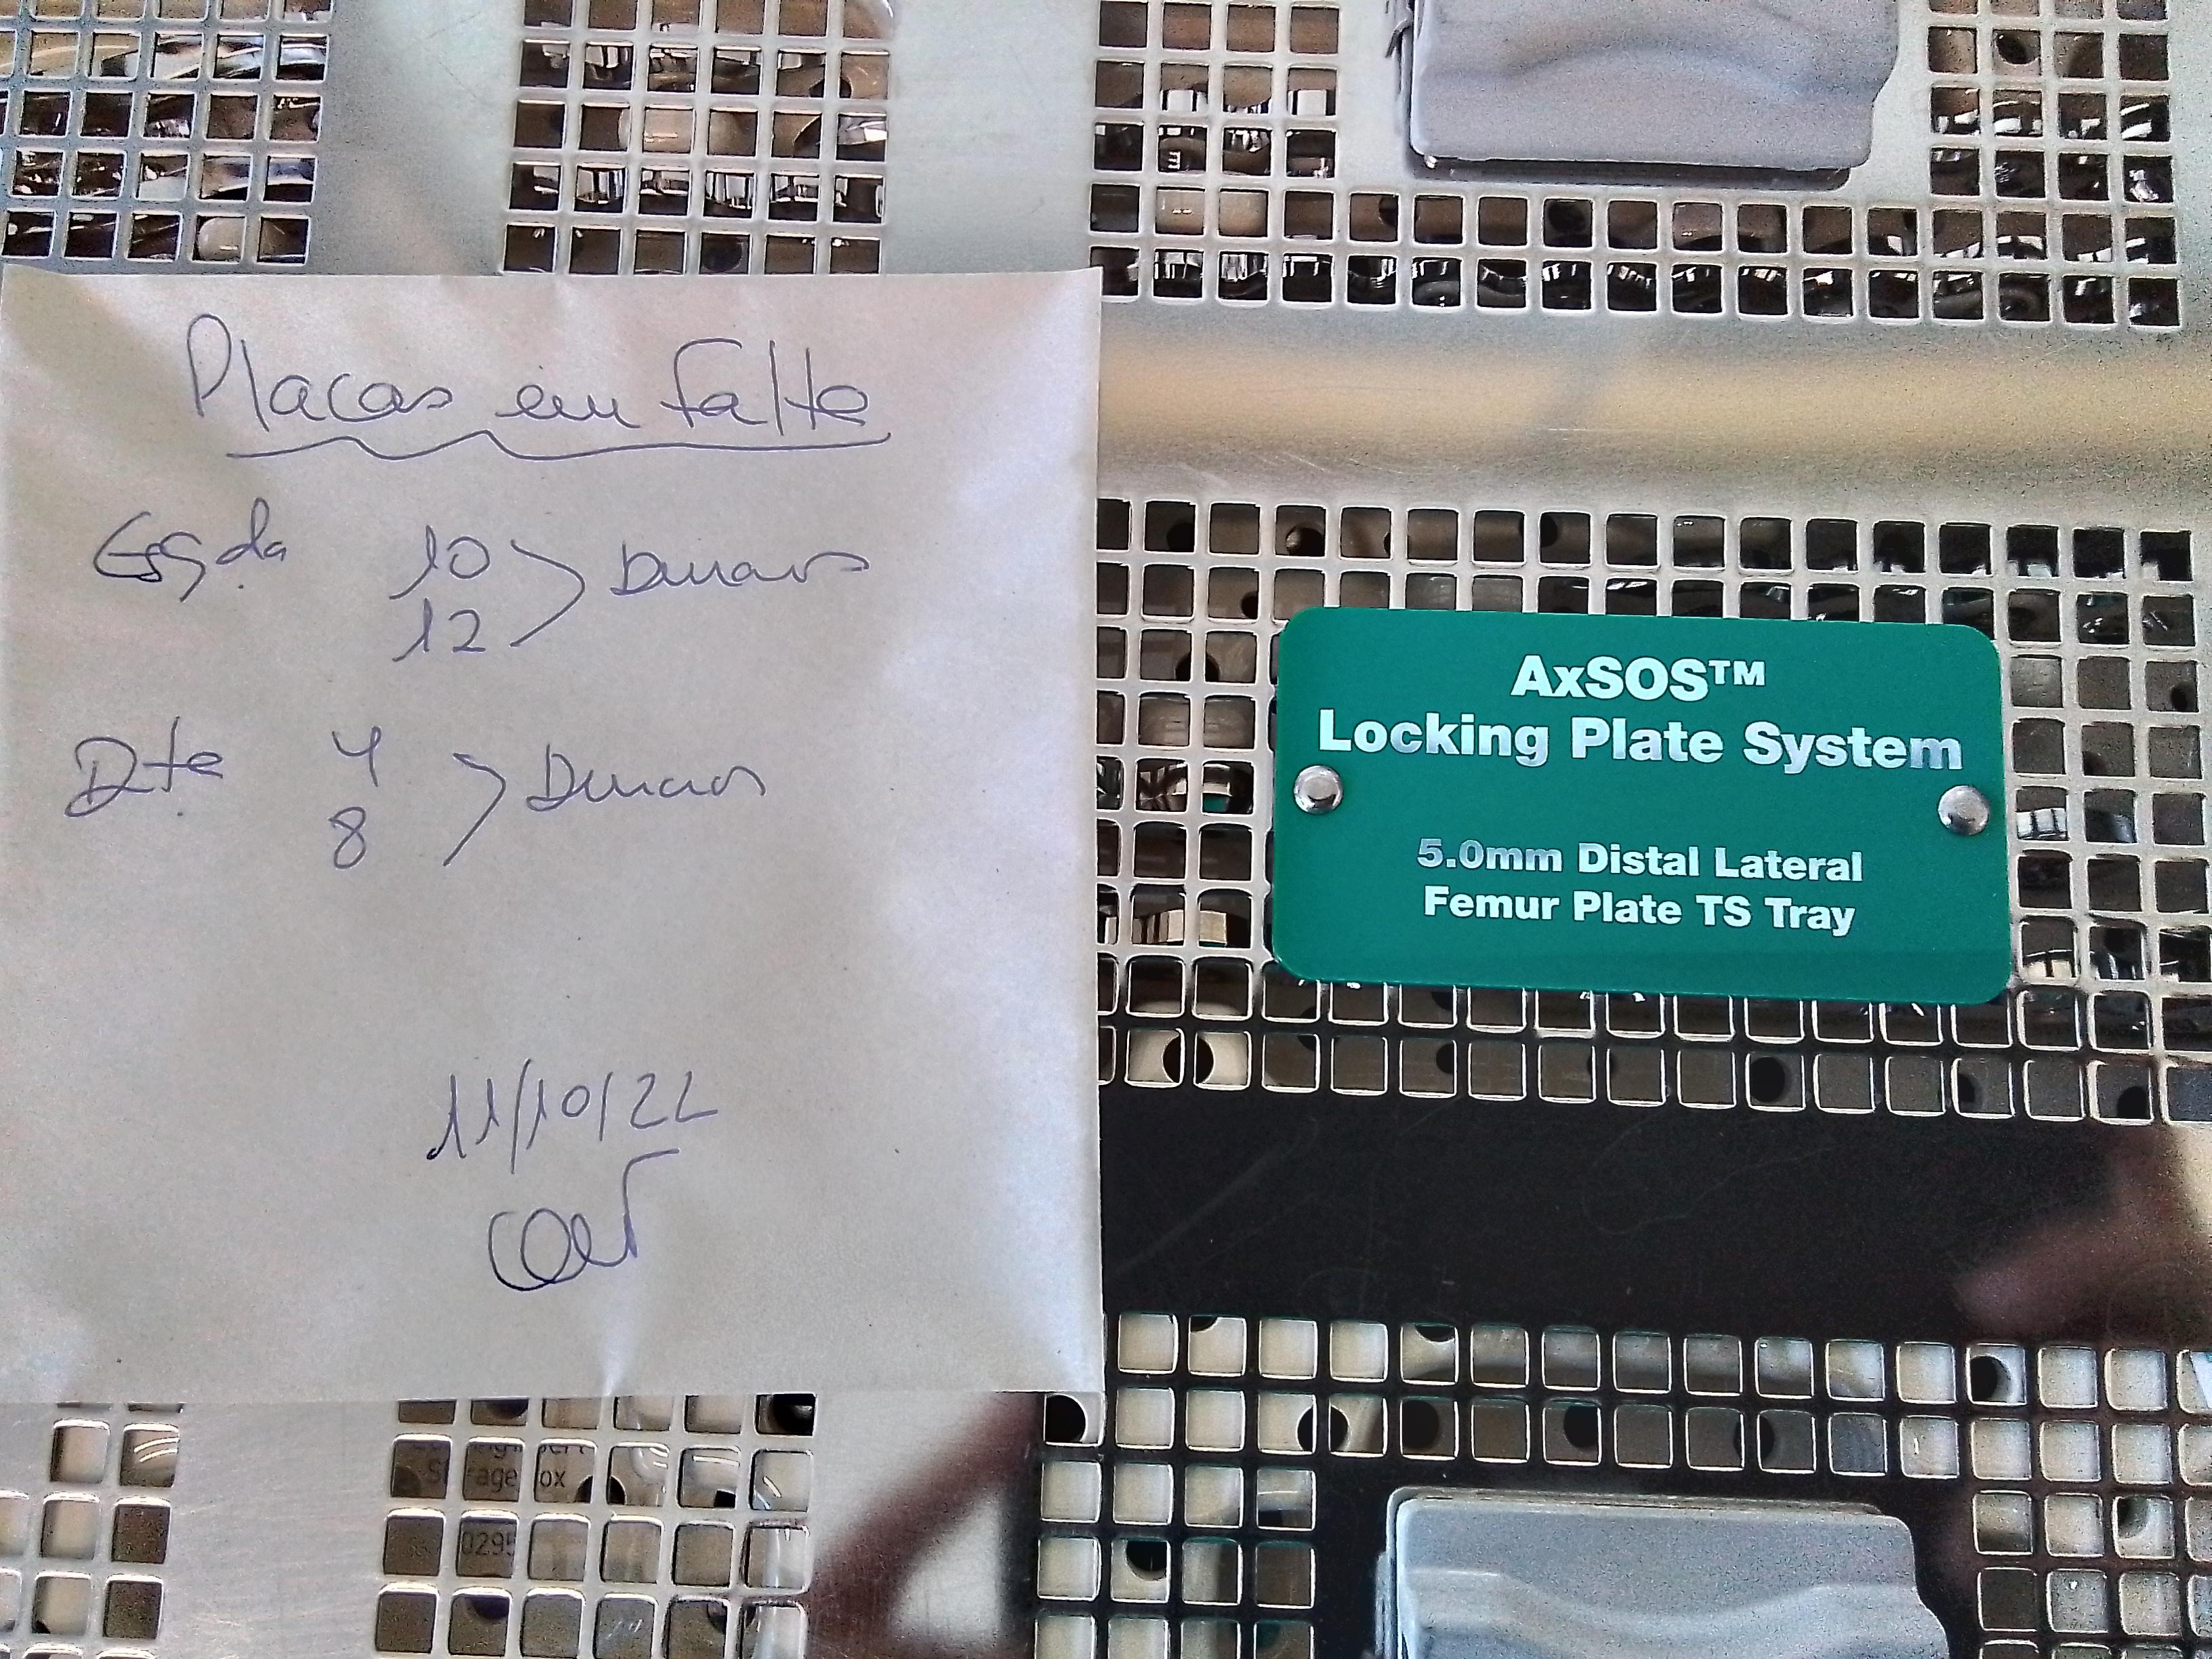 Placas em Falta
Esqda 10
12 > Buracos
Dta 4
8 > Buracos
11/10/22
AxSOS™
Locking Plate System
5.0mm Distal Lateral
Femur Plate TS Tray
rage ox
0295